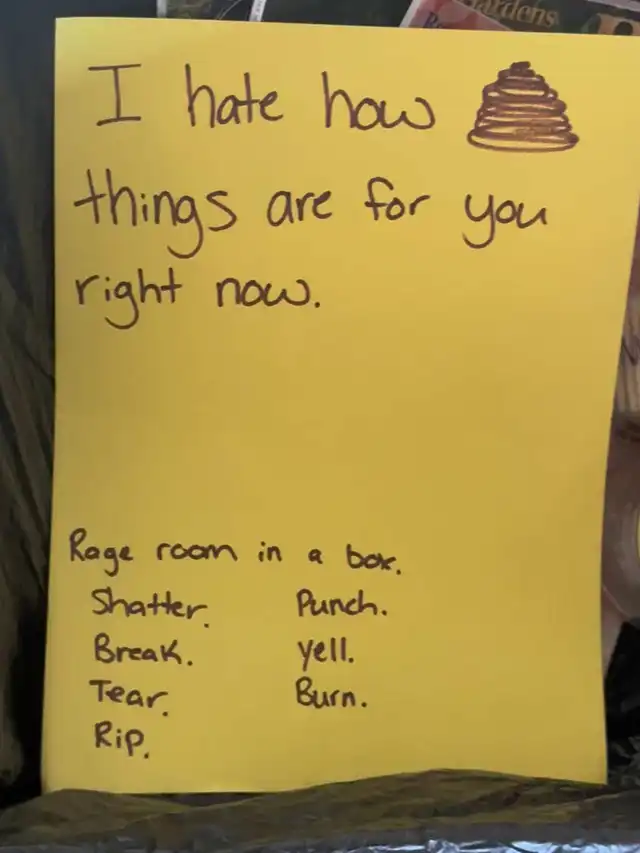 ardens
I hate how
things are for you
right now.
Rage room in a box.
Shatter.
Break.
Tear.
Rip.
Punch.
Yell.
Burn.